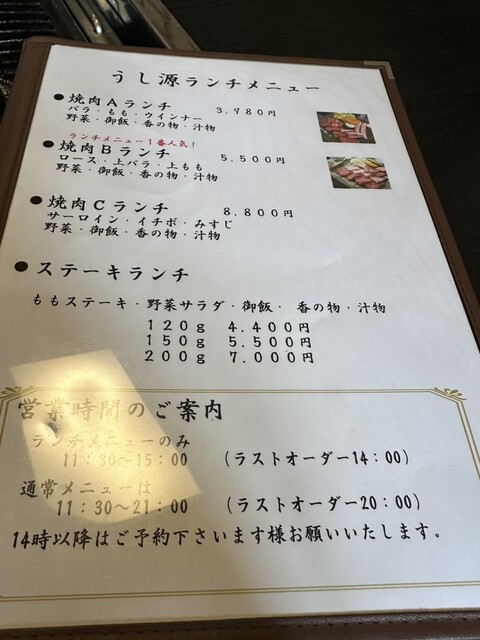 うし源ランチメニュー
●焼肉Aランチ 3,980円
バラ・もも・ウインナー
野菜・御飯・香の物・汁物
ランチメニュー1番人気！
●焼肉Bランチ 5.500円
ロース・上バラ・上もも
野菜・御飯・香の物・汁物
●焼肉Cランチ 8.800円
サーロイン・イチボ・みすじ
野菜・御飯・香の物・汁物
●ステーキランチ
ももステーキ・野菜サラダ・御飯・香の物・汁物
120g 4.400円
150g 5.500円
200g 7.000円
営業時間のご案内
ランチメニューのみ
11:30～15:00 (ラストオーダー14:00)
通常メニューは
11:30～21:00 (ラストオーダー20:00)
14時以降はご予約下さいます様お願いいたします。